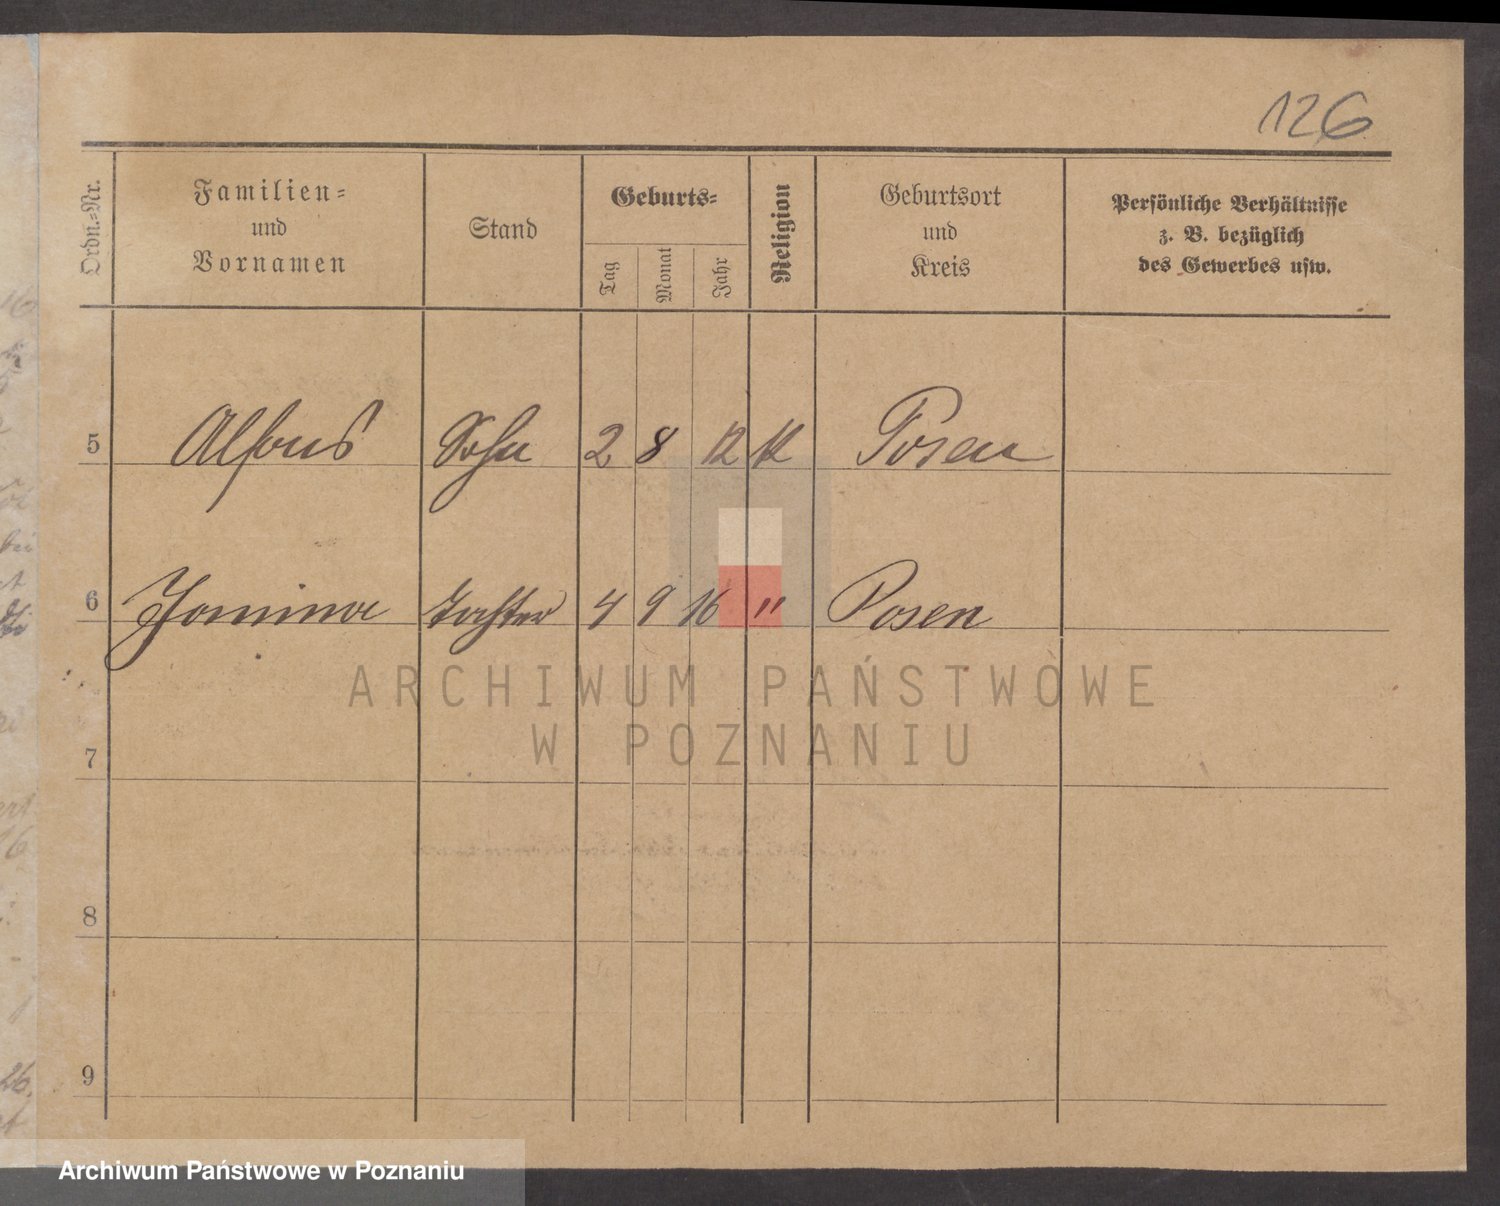 126
Ordn.-Nr.
Familien-
und
Vornamen
Stand
Geburts-
Tag
Monat
Jahr
Religion
Geburtsort
und
Kreis
Persönliche Verhältnisse
z. B. bezüglich
des Gewerbes usw.
5 Alfons Sohn 2 8 12 K Posen
6 Janina Tochter 4 9 16 " Posen
ARCHIWUM PAŃSTWOWE
W POZNANIU
7
8
9
26.
Archiwum Państwowe w Poznaniu